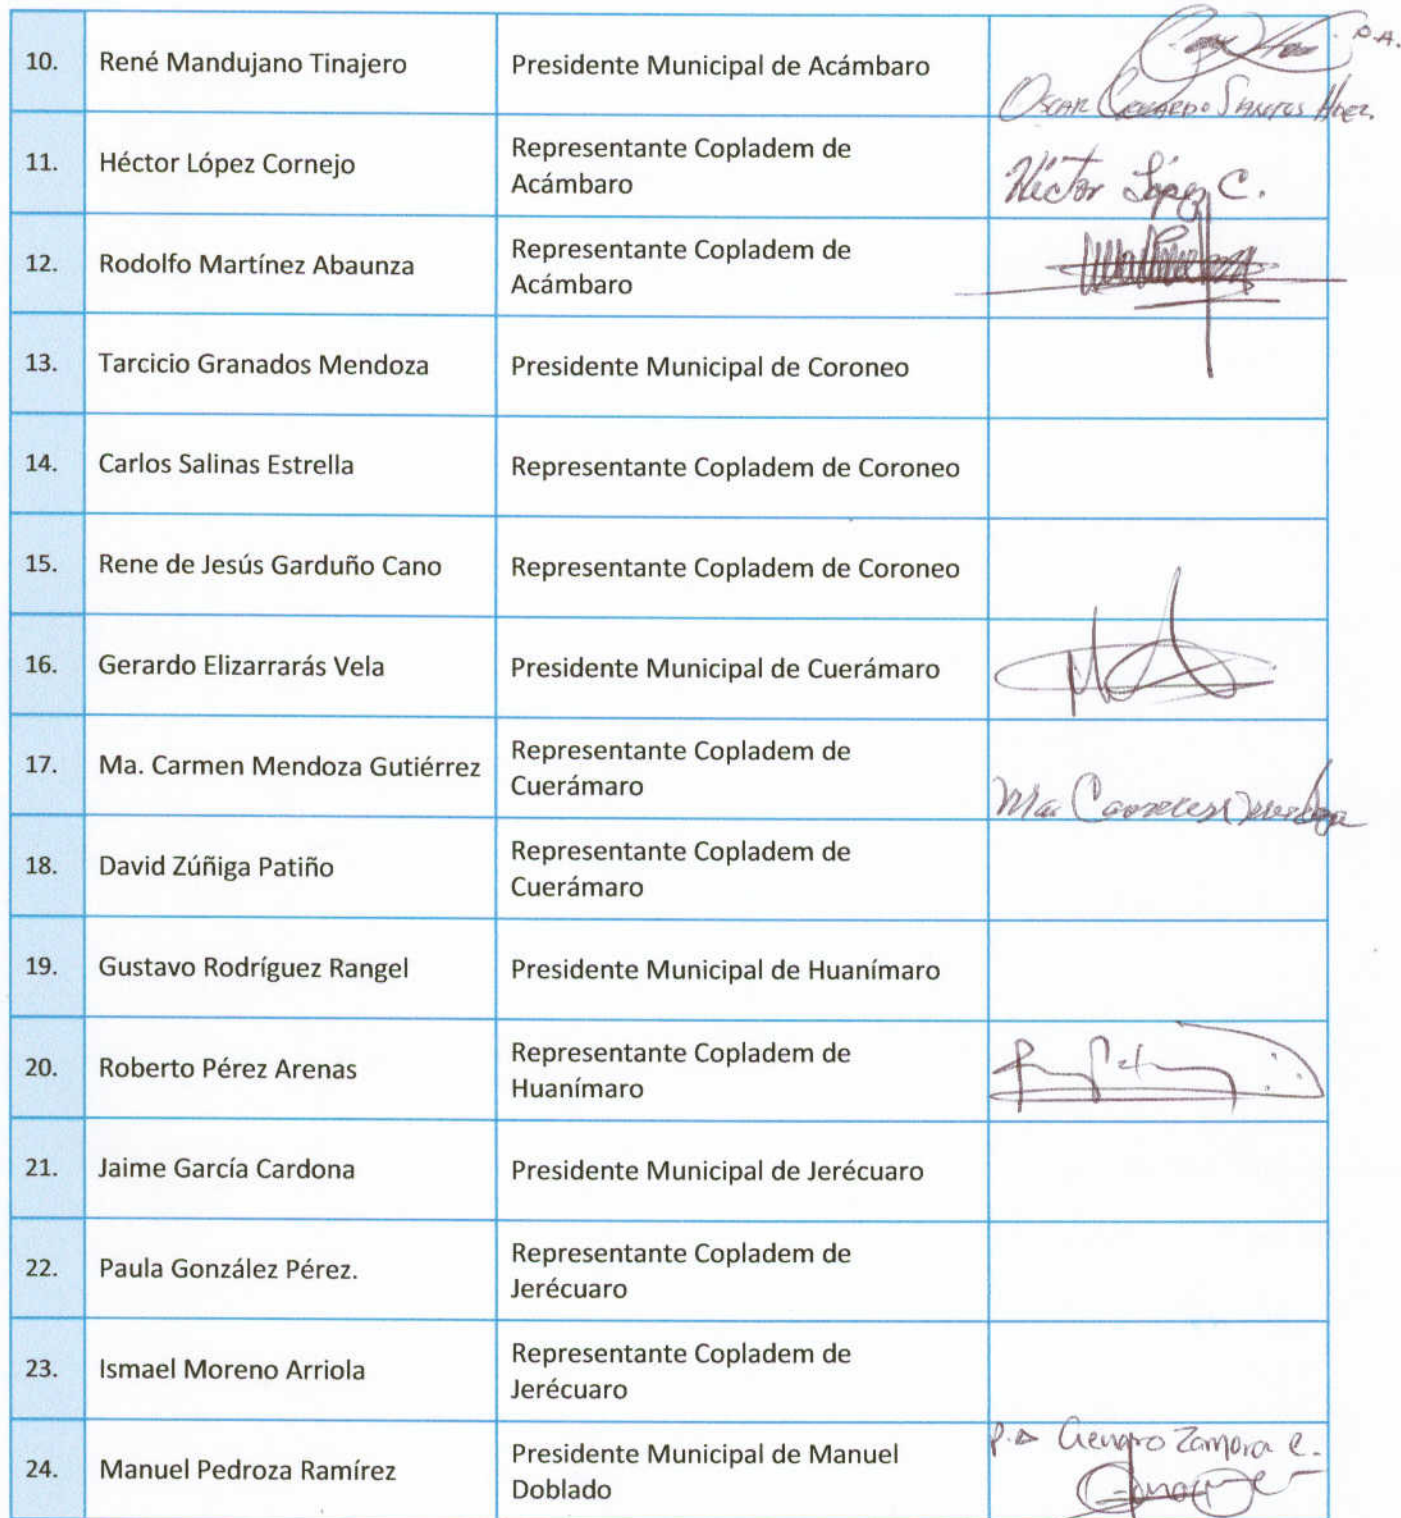 10. René Mandujano Tinajero Presidente Municipal de Acámbaro P.A.
OSCAR GERARDO SANTOS HDEZ.
11. Héctor López Cornejo Representante Copladem de
Acámbaro Héctor López C.
12. Rodolfo Martínez Abaunza Representante Copladem de
Acámbaro
13. Tarcicio Granados Mendoza Presidente Municipal de Coroneo
14. Carlos Salinas Estrella Representante Copladem de Coroneo
15. Rene de Jesús Garduño Cano Representante Copladem de Coroneo
16. Gerardo Elizarrarás Vela Presidente Municipal de Cuerámaro
17. Ma. Carmen Mendoza Gutiérrez Representante Copladem de
Cuerámaro Ma Carmen Mendoza
18. David Zúñiga Patiño Representante Copladem de
Cuerámaro
19. Gustavo Rodríguez Rangel Presidente Municipal de Huanímaro
20. Roberto Pérez Arenas Representante Copladem de
Huanímaro
21. Jaime García Cardona Presidente Municipal de Jerécuaro
22. Paula González Pérez. Representante Copladem de
Jerécuaro
23. Ismael Moreno Arriola Representante Copladem de
Jerécuaro
24. Manuel Pedroza Ramírez Presidente Municipal de Manuel
Doblado P.A Genaro Zamora C.